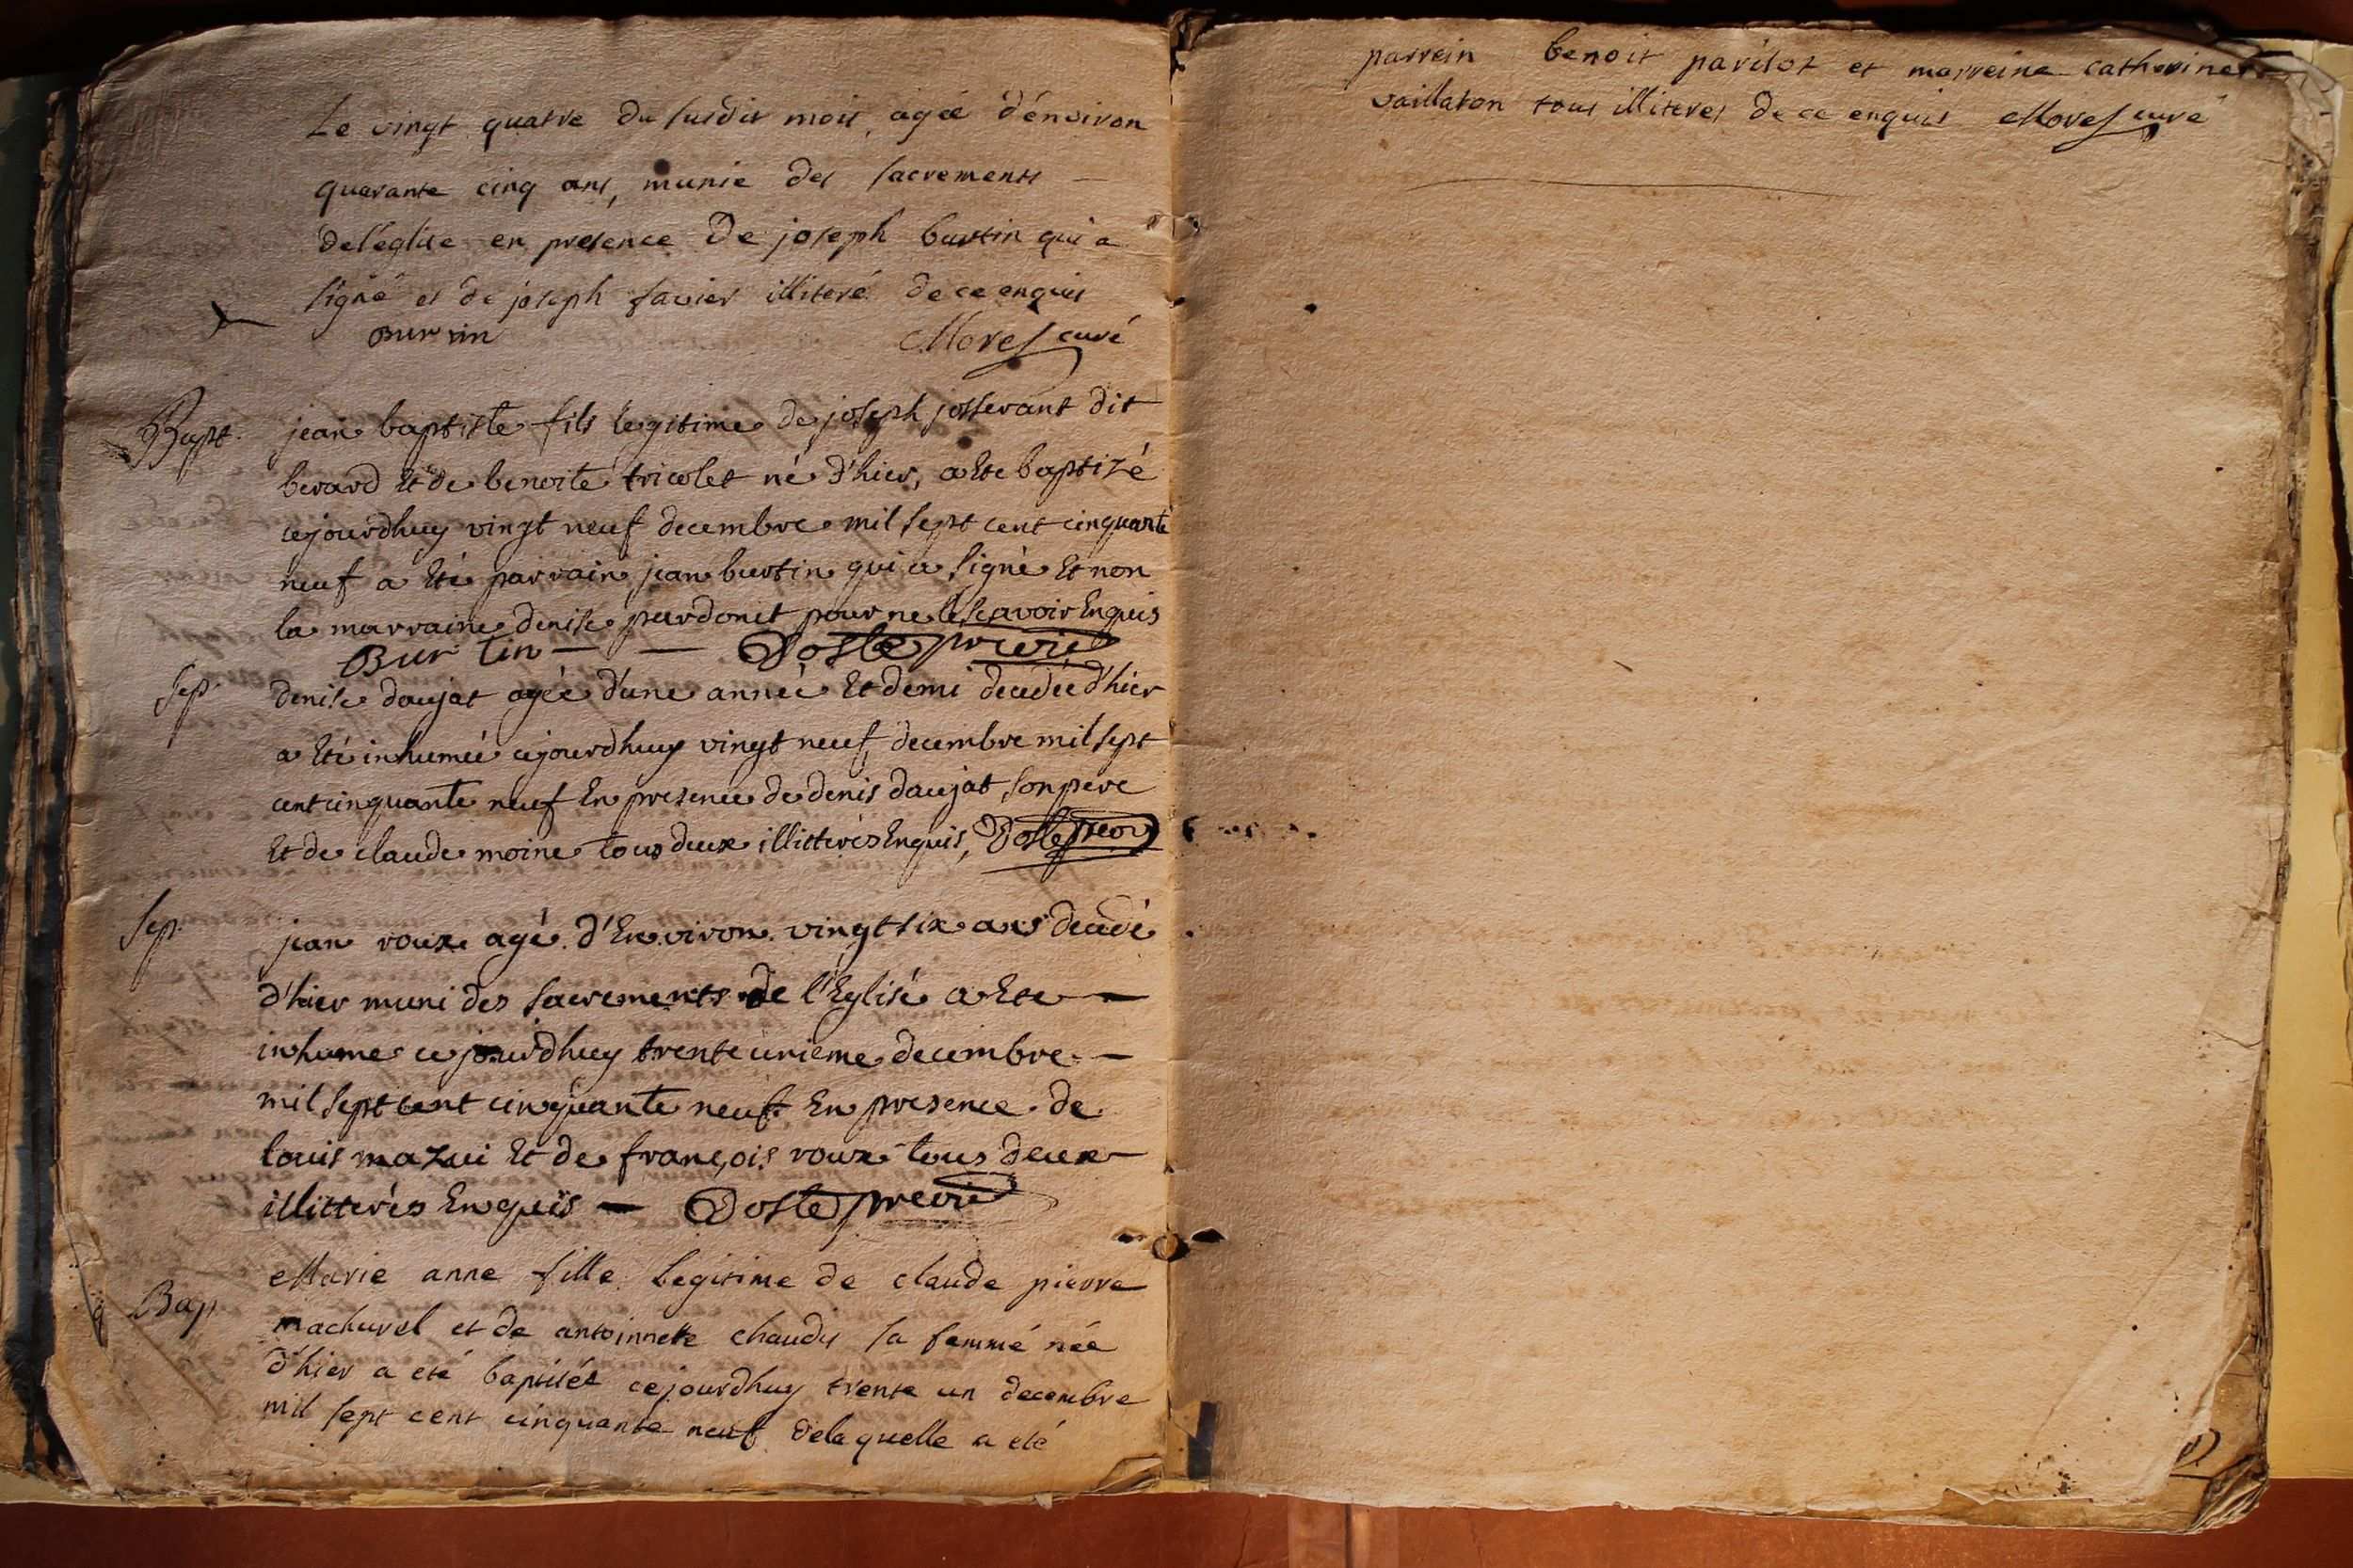 Le vingt quatre du susdit mois, agée d'énviron
quarante cinq ans, munie des sacrements
de l'église en presence de joseph burtin qui a
signé et de joseph favier illiteré de ce enquis
Burtin Morel curé
Bapt. jean baptiste fils legitime de joseph josserant dit
berard Et de benoite tricolet né d'hier, a Ete baptizé
cejourdhuy vingt neuf decembre mil sept cent cinquante
neuf a Eté parrain jean burtin qui a signé Et non
la marraine denise pardonet pour ne le scavoir Enquis
Bur tin Doste
Sep. denise daujat agée d'une année Et demi decedée d'hier
a Eté inhumée cejourdhuy vingt neuf decembre mil sept
cent cinquante neuf En presence de denis daujat son pere
Et de claude moine tous deux illitterés Enquis, Doste
Sep. jean roux agé d'Environ vingt six ans decedé
d'hier muni des sacrements de l'Eglise a Ete
inhume cejourdhuy trente unieme decembre
mil sept cent cinquante neuf En presence de
louis mazui Et de françois roux tous deux
illitterés Enquis Doste
Bap. Marie anne fille legitime de claude pierre
machurel et de antoinette chaudy sa femme née
d'hier a eté baptisée cejourdhuy trente un decembre
mil sept cent cinquante neuf de la quelle a eté
parrein benoit parilot et marreine catherine
vaillaton tous illiteres de ce enquis Morel curé